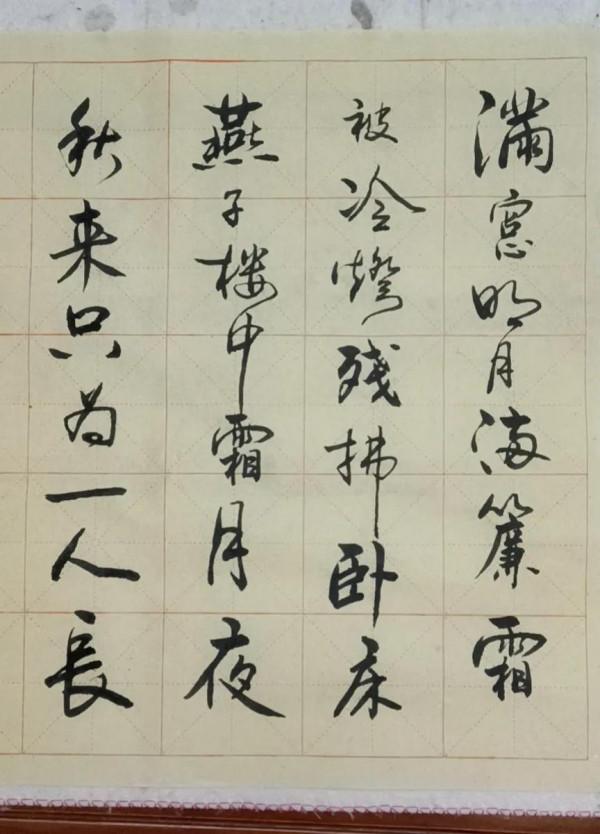 滿窓明月滿簾霜
被冷燈殘拂臥床
燕子樓中霜月夜
秋来只為一人長